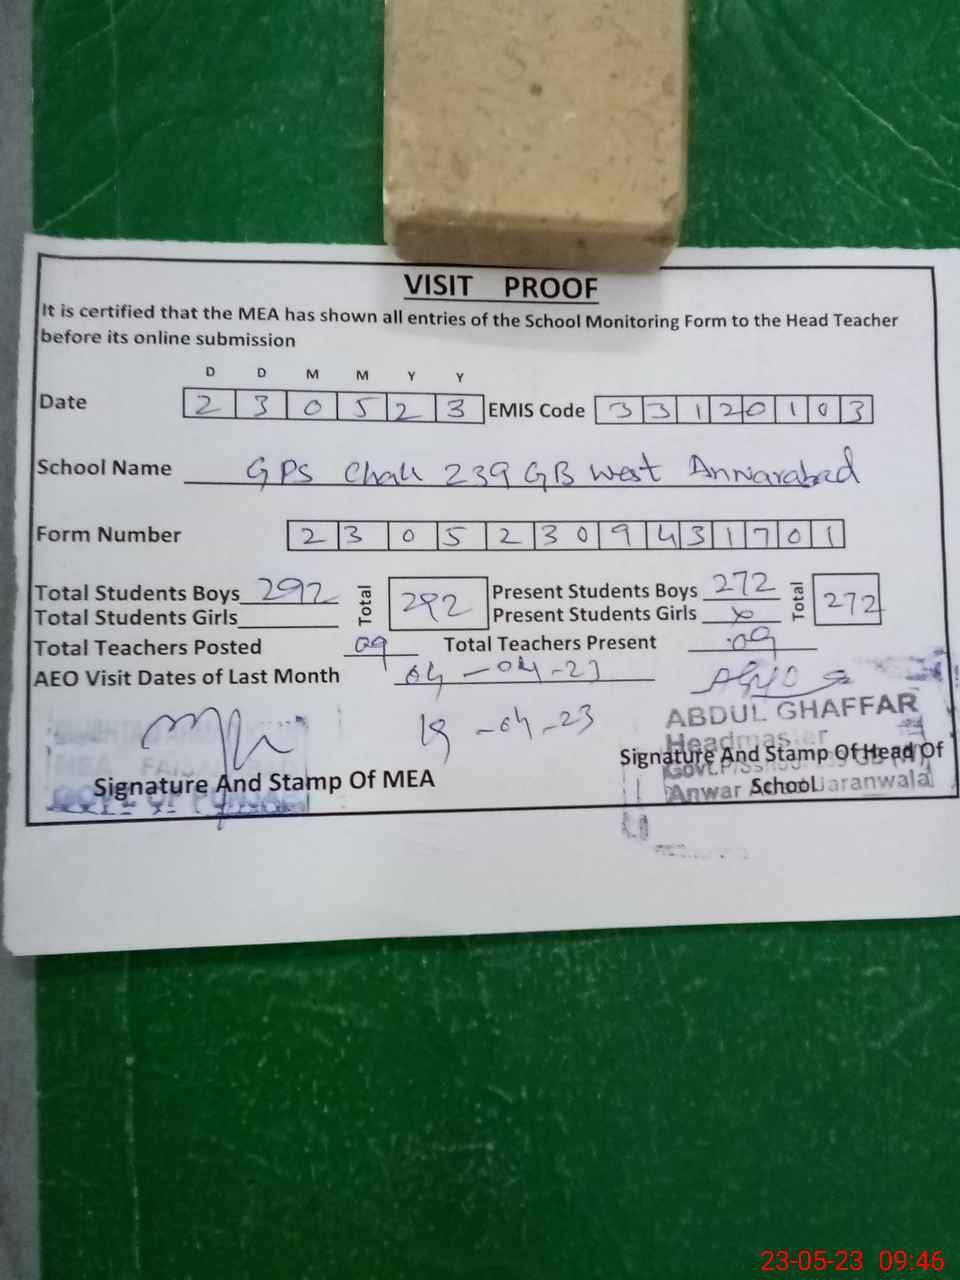 VISIT PROOF
It is certified that the MEA has shown all entries of the School Monitoring Form to the Head Teacher
before its online submission
D D M M Y Y
Date 2 3 0 5 2 3 EMIS Code 3 3 1 2 0 1 0 3
School Name GPS Chak 239 GB West Anwarabad
Form Number 2 3 0 5 2 3 0 9 4 3 1 7 0 1
Total Students Boys 292 Total 292 Present Students Boys 272 Total 272
Total Students Girls Present Students Girls x
Total Teachers Posted 09 Total Teachers Present 09
AEO Visit Dates of Last Month 04-04-23
18-04-23
ABDUL GHAFFAR
Headmaster
Signature And Stamp Of MEA
Signature And Stamp Of Head Of
School
Anwar Jaranwala
23-05-23 09:46